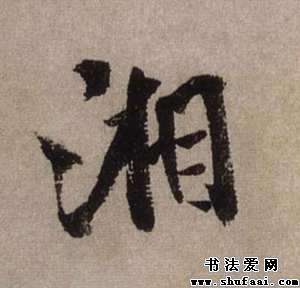 湘
书法爱网
www.shufaai.com